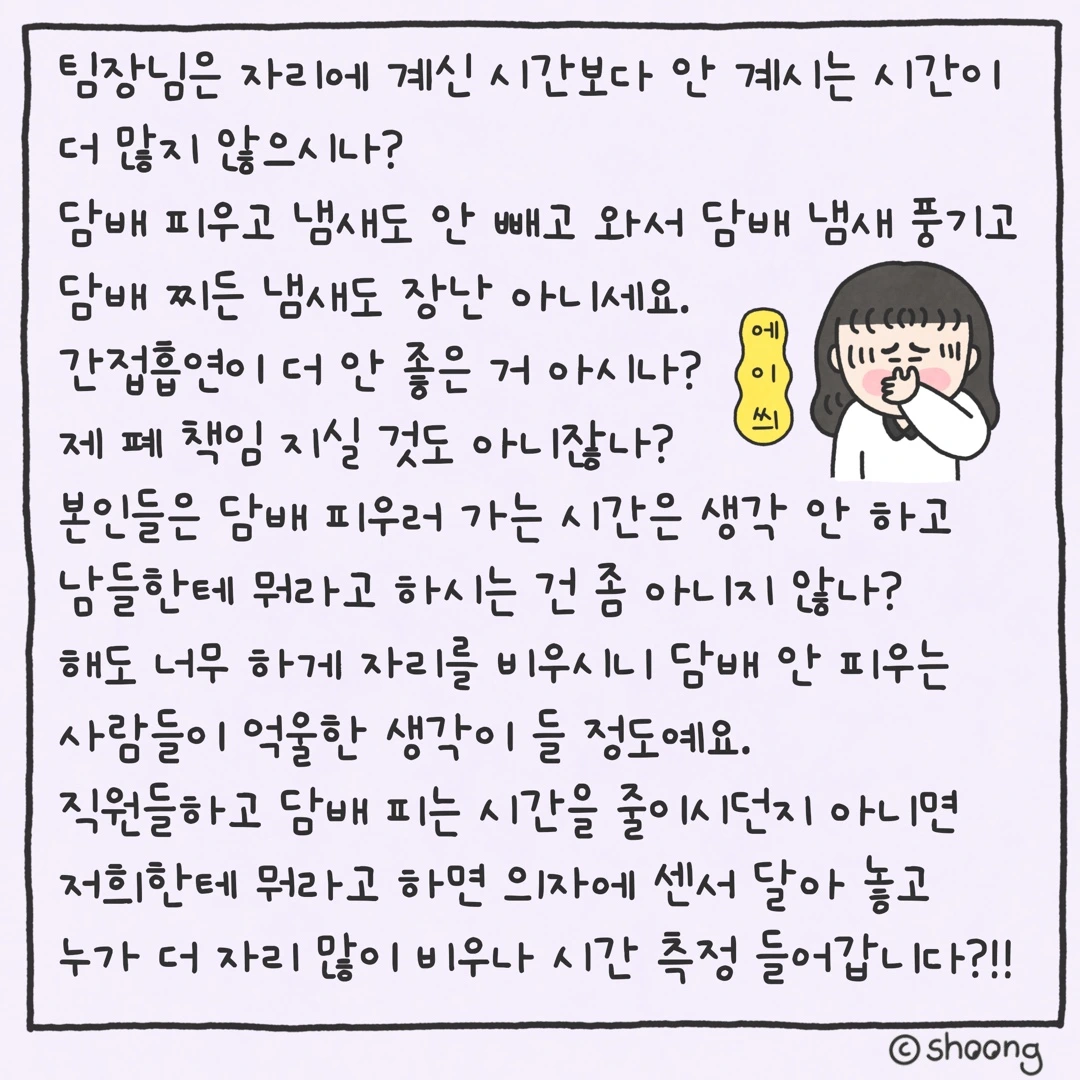 팀장님은 자리에 계신 시간보다 안 계시는 시간이
더 많지 않으시나?
담배 피우고 냄새도 안 빼고 와서 담배 냄새 풍기고
담배 찌든 냄새도 장난 아니세요.
간접흡연이 더 안 좋은 거 아시나?
제 폐 책임 지실 것도 아니잖나?
본인들은 담배 피우러 가는 시간은 생각 안 하고
남들한테 뭐라고 하시는 건 좀 아니지 않나?
해도 너무 하게 자리를 비우시니 담배 안 피우는
사람들이 억울한 생각이 들 정도예요.
직원들하고 담배 피는 시간을 줄이시던지 아니면
저희한테 뭐라고 하면 의자에 센서 달아 놓고
누가 더 자리 많이 비우나 시간 측정 들어갑니다?!!
에이씌
©shoong